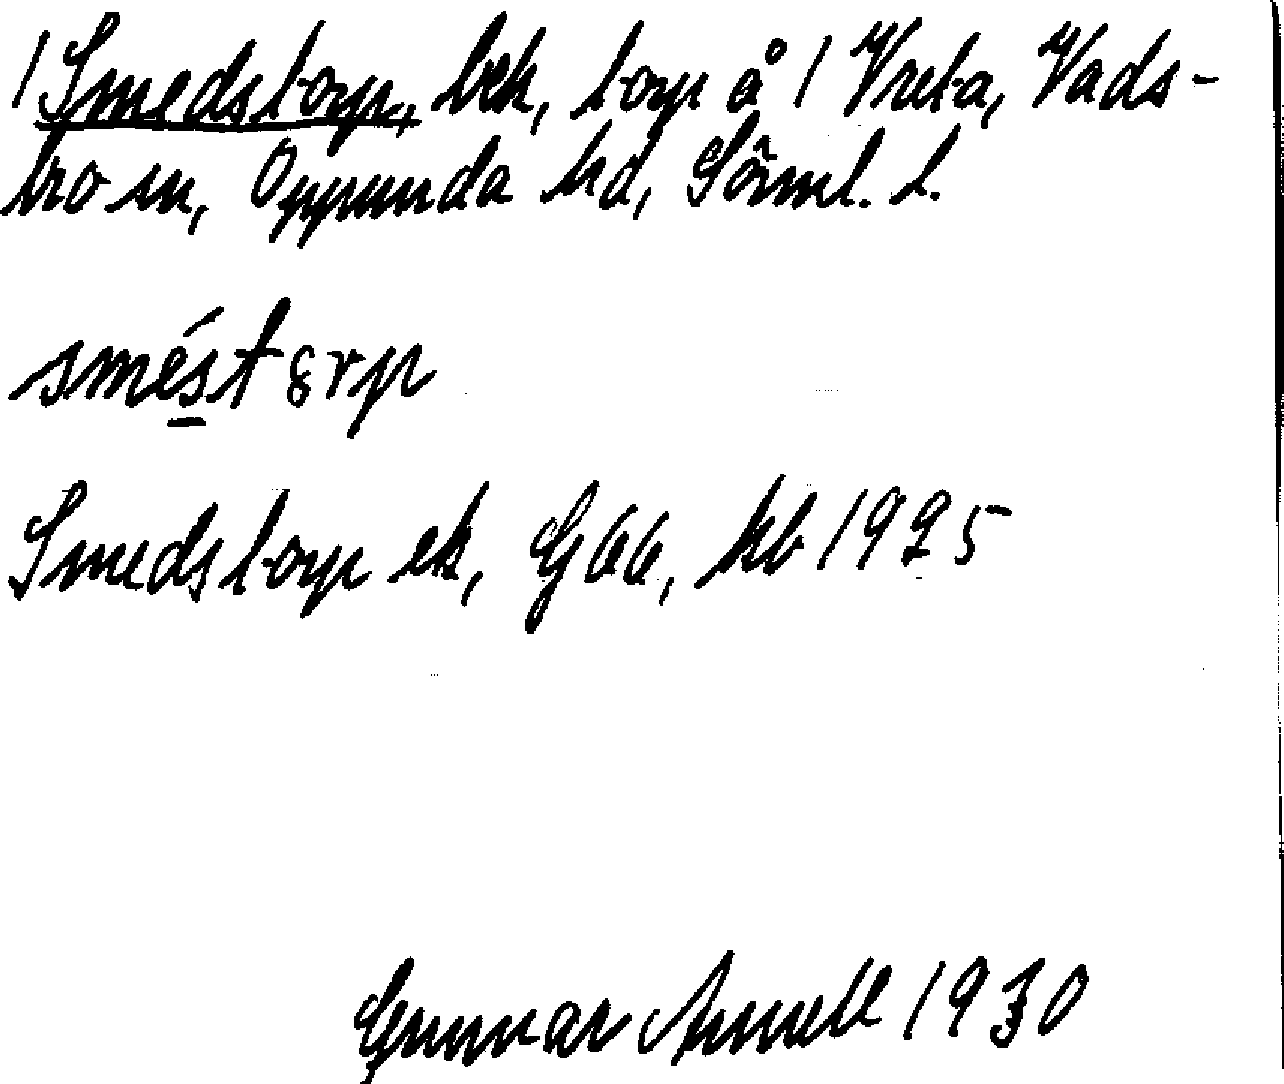 /Smedstorp, bek, torp å / Vreta, Vads-
bro sn, Oppunda hd, Sörml. l.
smést8rp
Smedstorp ek, G66, kb 1925
Gunnar Annell 1930